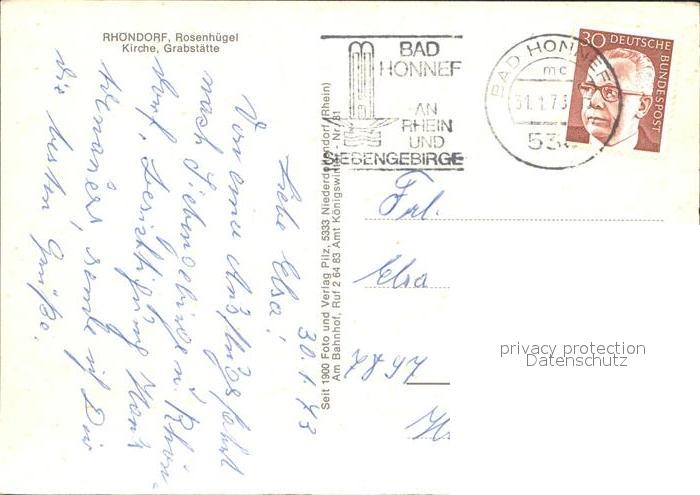 RHÖNDORF, Rosenhügel
Kirche, Grabstätte
30.1.73
Liebe Elsa!
Von einer Ausflugsfahrt
nach Siebengebirge u. Rhön-
dorf, Besichtigung Haus
Adenauers, sende ich Dir
die besten Grüße.
Seit 1900 Foto und Verlag Pilz, 5333 Niederdollendorf (Rhein)
Am Bahnhof, Ruf 2 64 83 Amt Königswinter, Nr. 81
BAD
HONNEF
AN
RHEIN
UND
SIEBENGEBIRGE
BAD HONNEF
mc
31.1.73
534
30 DEUTSCHE
BUNDESPOST
Frl.
Elsa
7897
privacy protection
Datenschutz